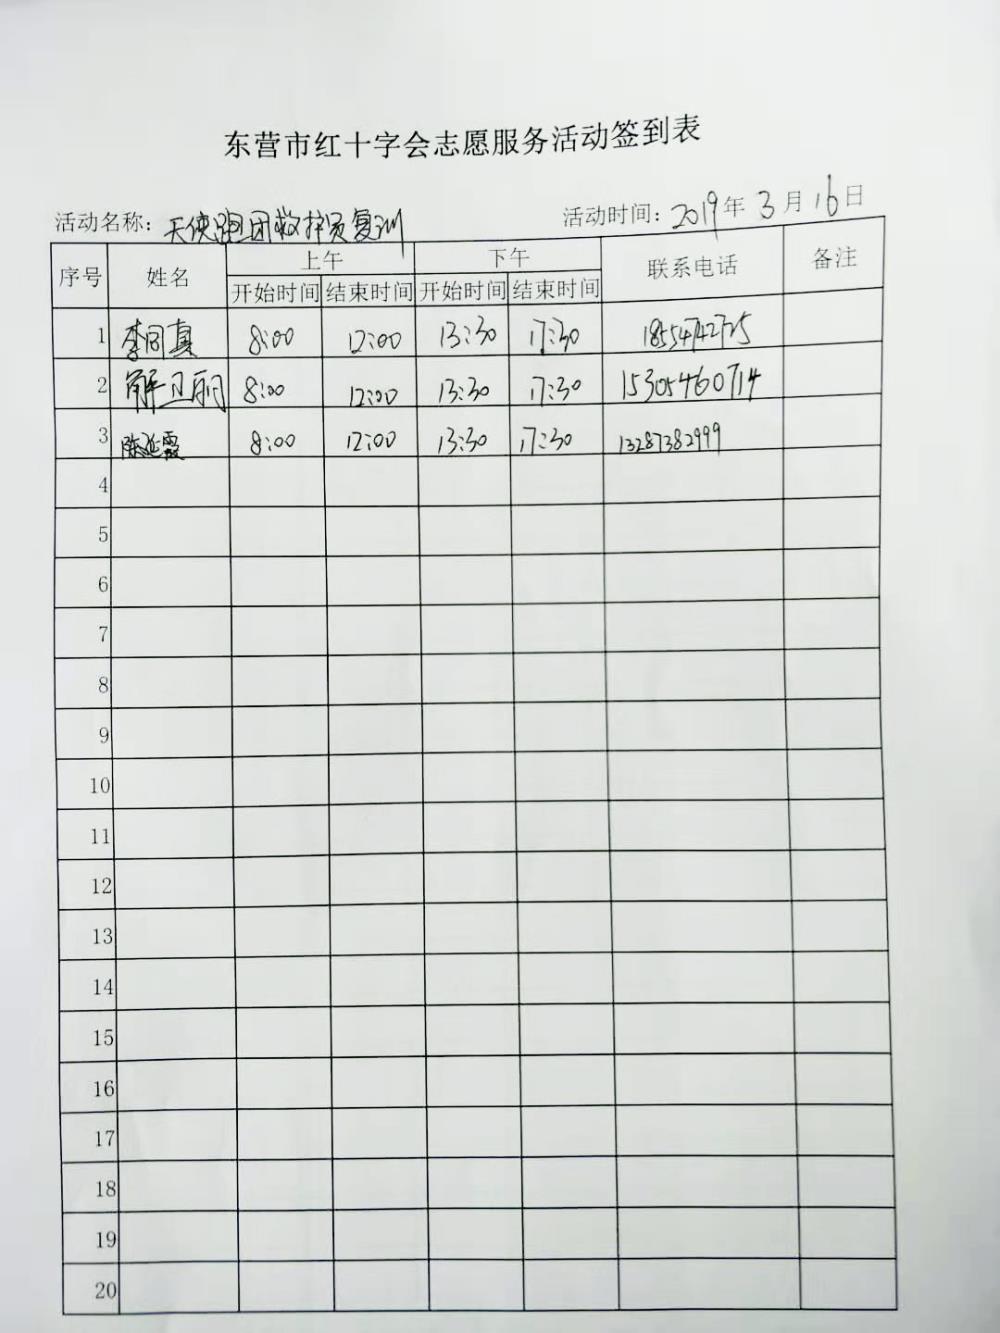 东营市红十字会志愿服务活动签到表
活动名称：天使跑团救护员复训 活动时间：2019年3月16日
序号 姓名 上午 下午 联系电话 备注
开始时间 结束时间 开始时间 结束时间
1 李同真 8:00 12:00 13:30 17:30
2 解卫丽 8:00 12:00 13:30 17:30 15305460714
3 陈延霞 8:00 12:00 13:30 17:30 13287382999
4
5
6
7
8
9
10
11
12
13
14
15
16
17
18
19
20